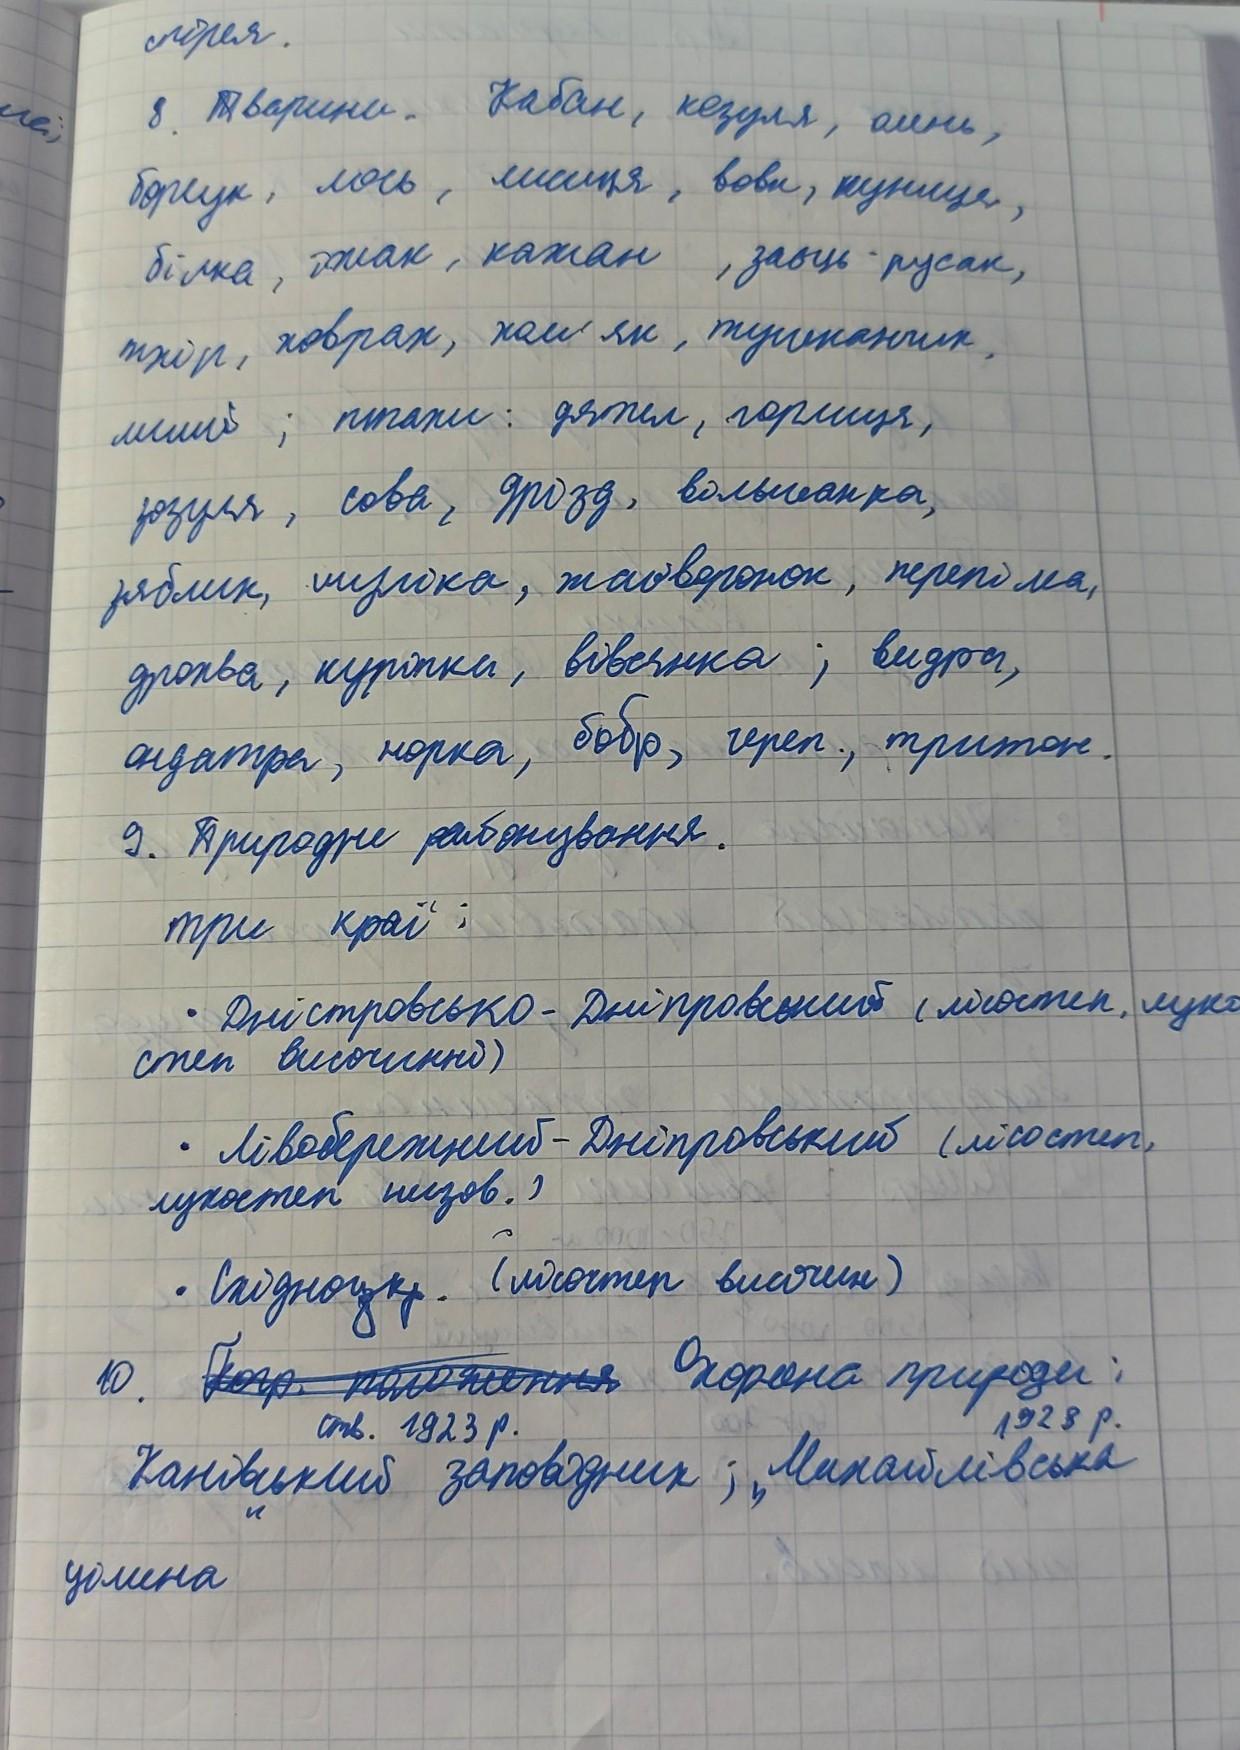 спірея.
8. Тварини. Кабан, козуля, олень,
борсук, лось, лисиця, вовк, куниця,
білка, їжак, кажан , заєць-русак,
тхір, ховрах, хом'як, тушканчик,
миші ; птахи: дятел, горлиця,
зозуля, сова, дрізд, вільшанка,
зяблик, шуліка, жайворонок, перепілка,
дрохва, куріпка, вівсянка ; видра,
ондатра, норка, бобр, череп., тритон.
9. Природне районування.
три краї:
• Дністровсько-Дніпровський (лісостеп, луко
степ височинні)
• Лівобережний-Дніпровський (лісостеп,
лукостеп низов.)
• Східноукр. (лісостеп височин)
10. Геогр. положення Охорона природи:
ств. 1923 р. 1928 р.
Канівський заповідник ; „Михайлівська
цілина"